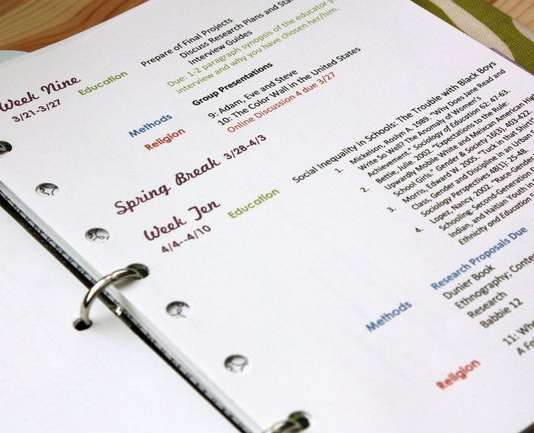 Prepare of Final Projects
Discuss Research Plans and
Interview Guides
Week Nine Education
3/21-3/27
Due: 1-2 paragraph synopsis of the educator
interview and why you have chosen her/him.
Group Presentations
Methods 9: Adam, Eve and Steve
10: The Color Wall in the United States
Religion Online Discussion 4 due 3/27
Spring Break 3/28-4/3
Week Ten Education Social Inequality in Schools: The Trouble with Black Boys
4/4--4/10
1. Mickelson, Roslyn A. 1989. "Why Does Jane Read and
Write So Well? The Anomaly of Women's
Achievement." Sociology of Education 62: 47-63.
2. Bettie, Julie. 2002. "Expectations to the Rule:
Upwardly Mobile White and Mexican American High
School Girls." Gender & Society 16(3): 403-422.
3. Morris, Edward W. 2005 "Tuck in that Shirt"
Class, Gender and Discipline in an Urban
Sociology Perspectives 48(1): 25-48.
4. Lopez, Nancy. 2002. "Race-Gender
Schooling: Second-Generation
Indian, and Haitian Youth in
Ethnicity and Education
Methods Research Proposals Due
Dunier Book
Ethnography;
Research
Babbie 12
Religion 11: